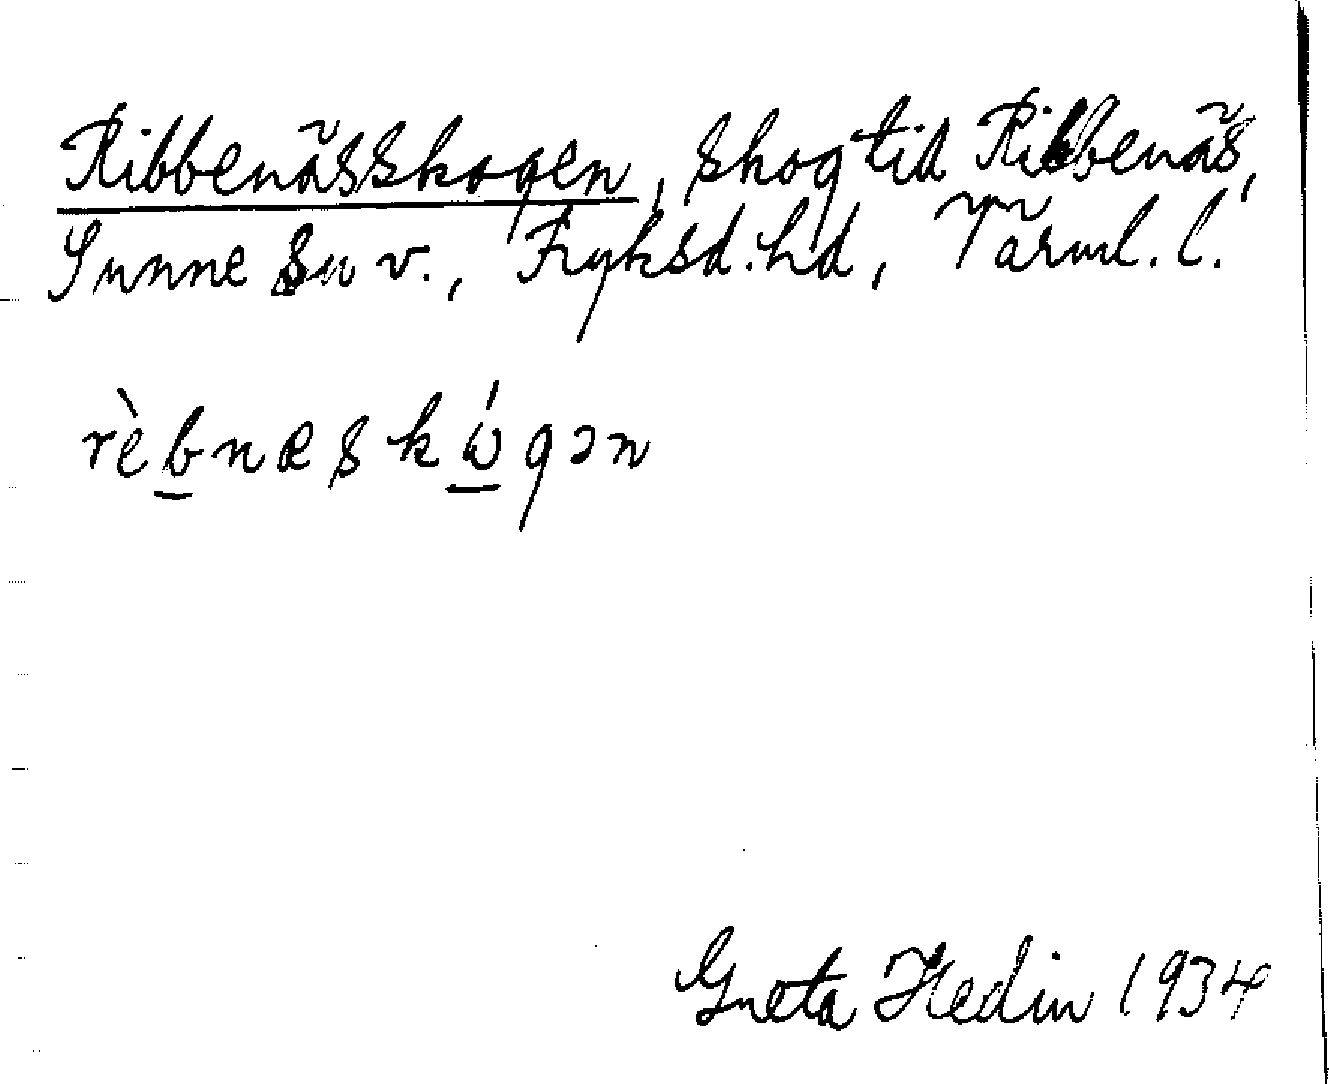 Ribbenässkogen, skog till Ribbenäs,
Sunne sn v., Fryksd. hd, Värml. l.
rèbnæskɷ́gən
Greta Hedin 1934